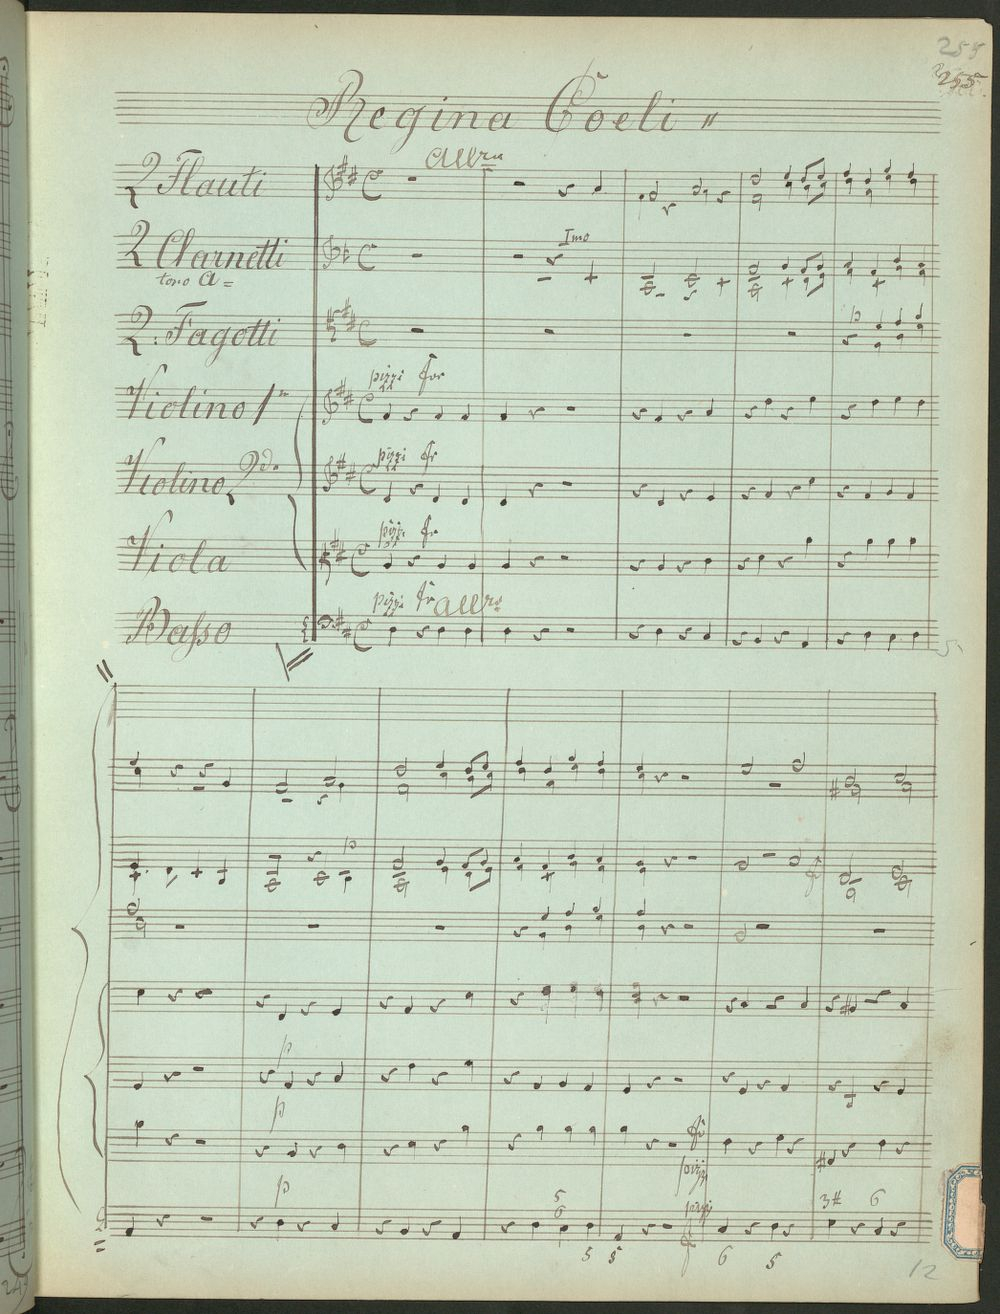 255
255
Regina Coeli "
Allro
2 Flauti
2 Clarnetti
Imo
tono A =
2: Fagotti
p
Violino 1mo
pizzi for
Violino 2do
pizzi fr
Viola
pizzi fr
Basso
pizzi fr Allro
p
p
p
p
pizzi
5
6
pizzi
3# 6
5 5 6 5
12
24